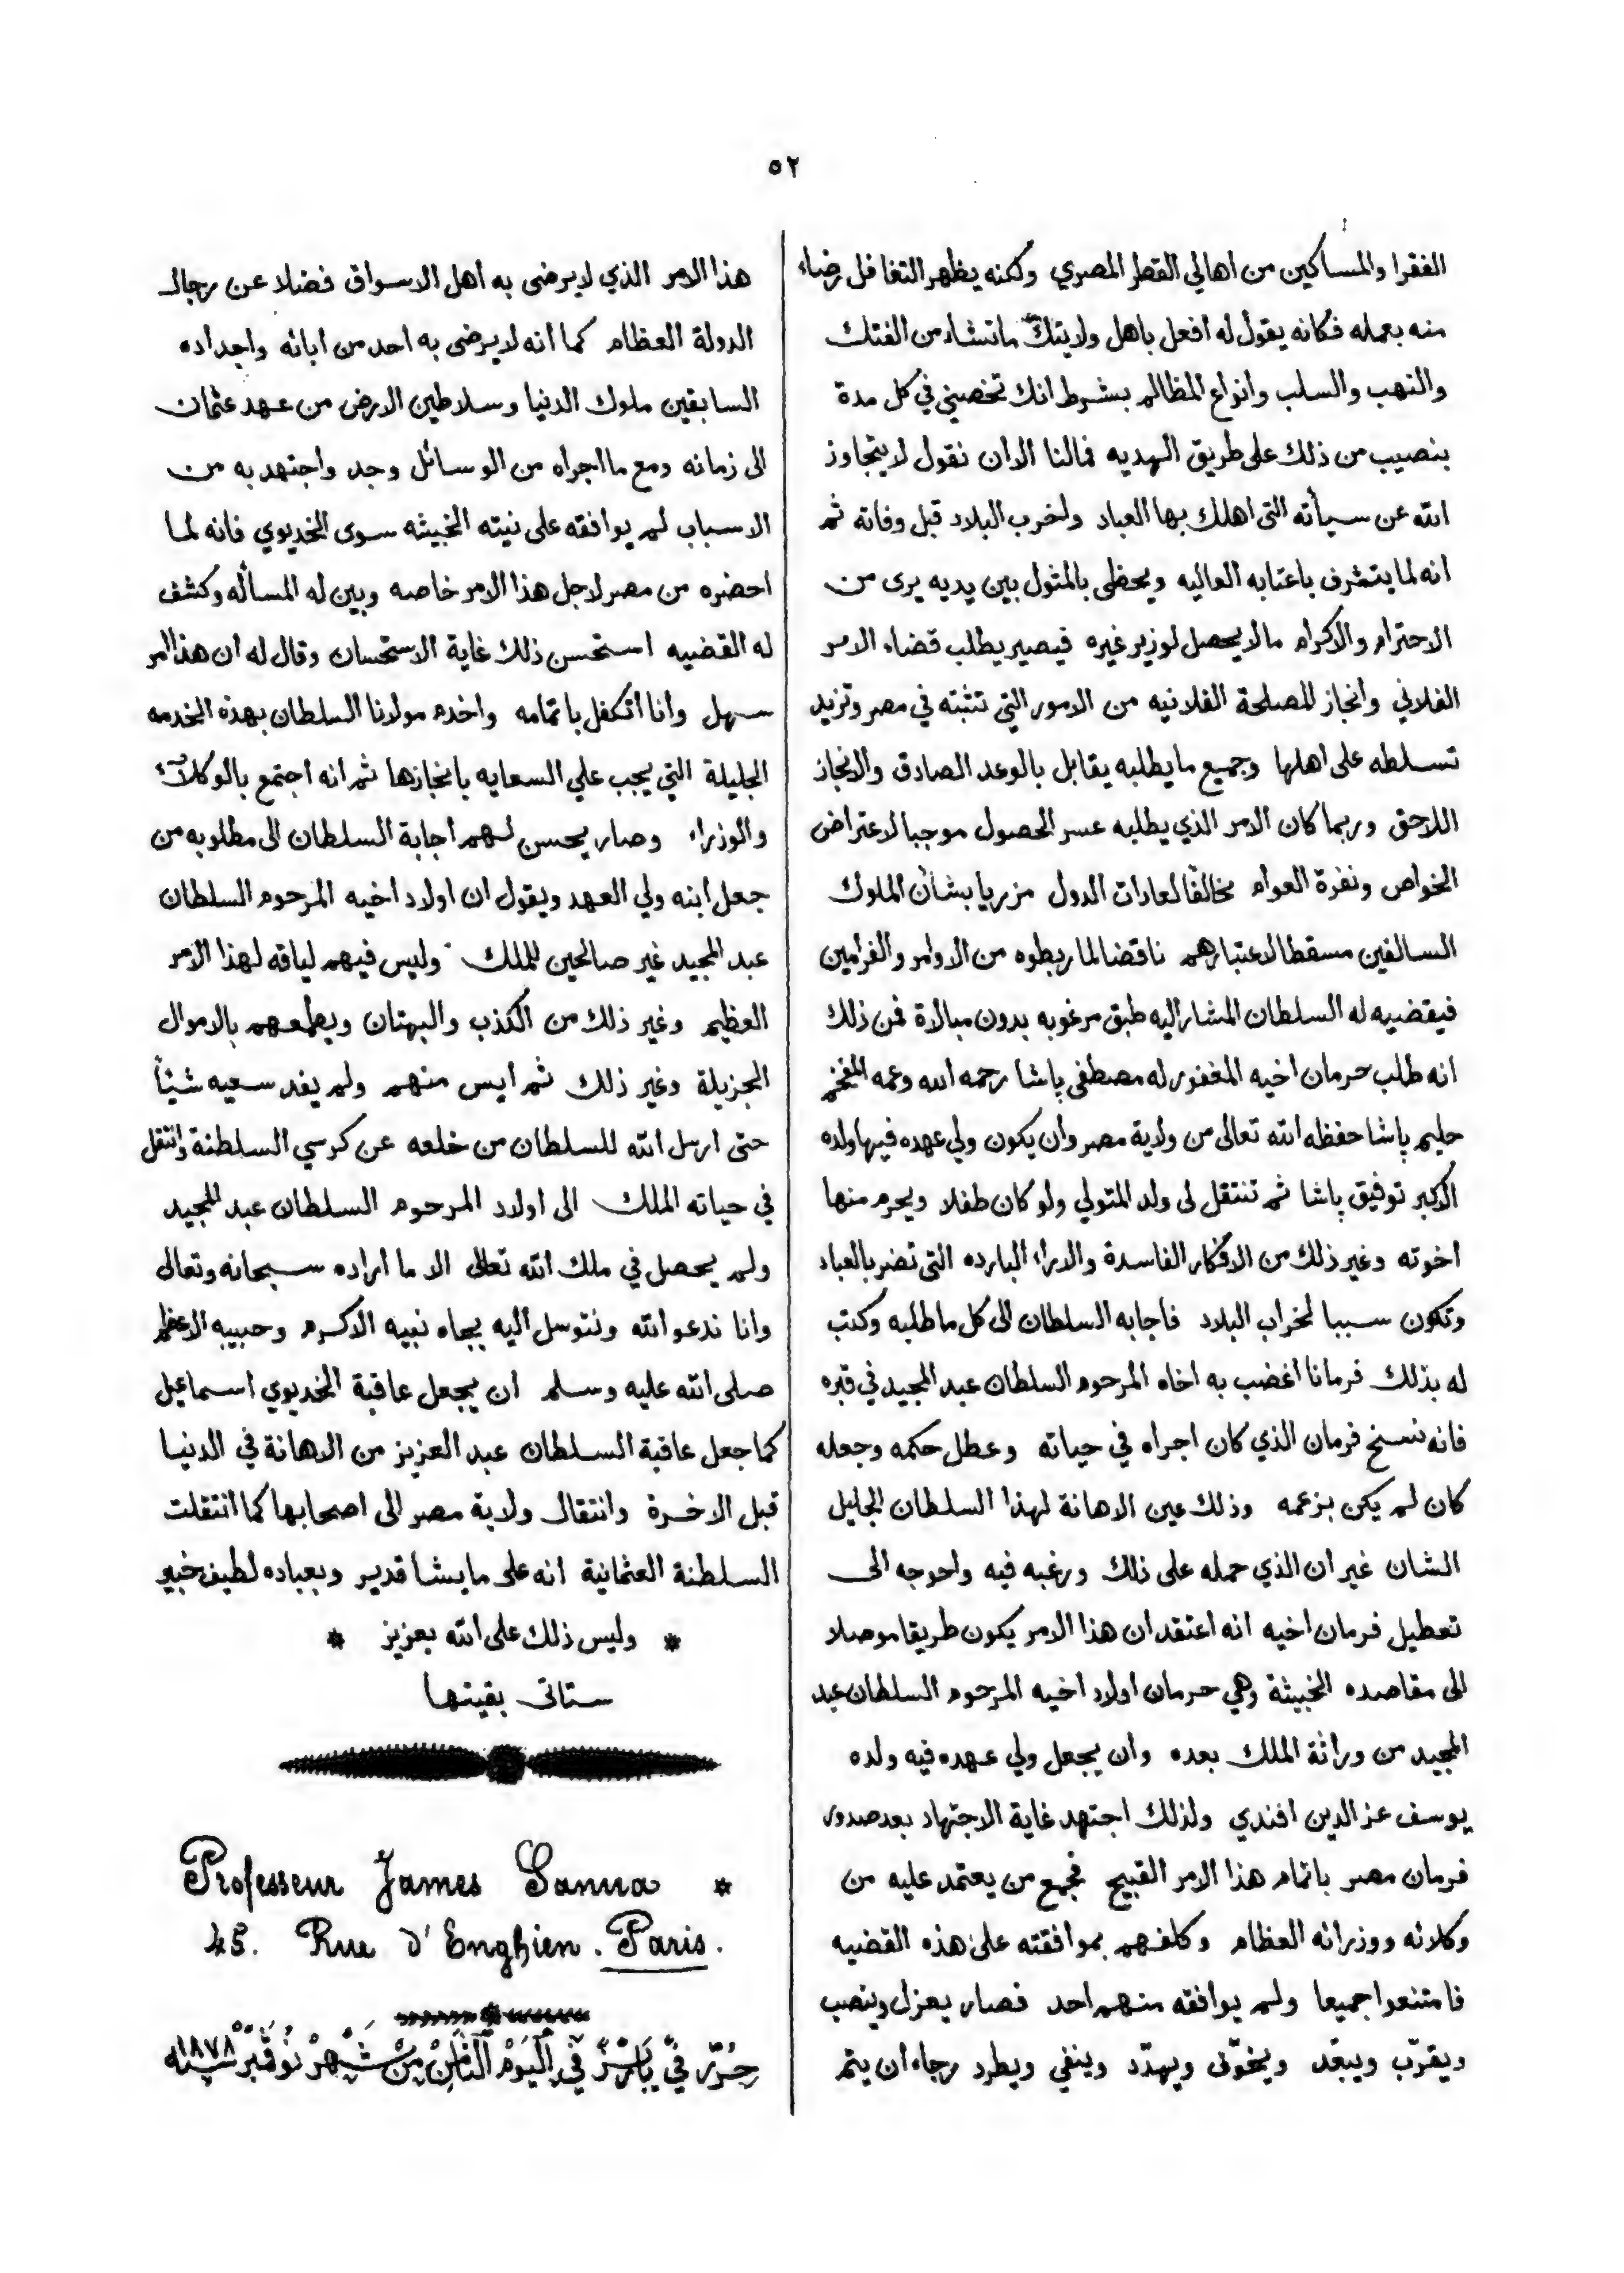 ٥٢
الفقرا والمساكين من اهالي القطر المصري ولكنه يظهر التغافل رضاء
منه بعمله فكانه يقول له افعل باهل ولايتك ماتشاء من الفتك
والنهب والسلب وانواع المظالم بشرط انك تخصني في كل مدة
بنصيب من ذلك على طريق الهديه فمالنا الان نقول لا يتجاوز
الله عن سيأته التى اهلك بها العباد واخرب البلاد قبل وفاته ثم
انه لما يتشرف باعتابه العاليه ويحظى بالمثول بين يديه يرى من
الاحترام والاكرام مالا يحصل لوزير غيره فيصير يطلب قضاء الامر
الفلاني وانجاز المصلحة الفلانيه من الامور التي تثبته في مصر وتزيد
تسلطه على اهلها وجميع ما يطلبه يقابل بالوعد الصادق والانجاز
اللاحق وربما كان الامر الذي يطلبه عسر الحصول موجبا لاعتراض
الخواص ونفرة العوام مخالفا لعادات الدول مزريا بشأن الملوك
السالفين مسقطا لاعتبارهم ناقضا لما ربطوه من الاوامر والفرامين
فيقضيه له السلطان المشار اليه طبق مرغوبه بدون مبالاة فمن ذلك
انه طلب حرمان اخيه المغفور له مصطفى پاشا رحمه الله وعمه المفخم
حليم پاشا حفظه الله تعالى من ولاية مصر وان يكون ولي عهده فيها ولده
الاكبر توفيق پاشا ثم تنتقل لى ولد المتولي ولو كان طفلا ويحرم منها
اخوته وغير ذلك من الافكار الفاسدة والاراء البارده التى تضر بالعباد
وتكون سببا لخراب البلاد فاجابه السلطان الى كل ما طلبه وكتب
له بذلك فرمانا اغضب به اخاه المرحوم السلطان عبد المجيد في قبره
فانه نسخ فرمان الذي كان اجراه في حياته وعطل حكمه وجعله
كان لم يكن بزعمه وذلك عين الاهانة لهذا السلطان الجليل
الشان غير ان الذي حمله على ذلك ورغبه فيه واحوجه الى
تعطيل فرمان اخيه انه اعتقد ان هذا الامر يكون طريقا موصلا
الى مقاصده الخبيثة وهي حرمان اولاد اخيه المرحوم السلطان عبد
المجيد من وراثة الملك بعده وان يجعل ولي عهده فيه ولده
يوسف عز الدين افندي ولذلك اجتهد غاية الاجتهاد بعد صدور
فرمان مصر باتمام هذا الامر القبيح فجمع من يعتمد عليه من
وكلائه ووزرائه العظام وكلفهم بموافقته على هذه القضيه
فامتنعوا جميعا ولم يوافقه منهم احد فصار يعزل وينصب
ويقرّب ويبعّد ويخوّف ويهدّد وينفي ويطرد رجاء ان يتم
هذا الامر الذي لا يرضى به اهل الاسواق فضلا عن رجال
الدولة العظام كما انه لا يرضى به احد من ابائه واجداده
السابقين ملوك الدنيا وسلاطين الارض من عهد عثمان
الى زمانه ومع ما اجراه من الوسائل وجد واجتهد به من
الاسباب لم يوافقه على نيته الخبيثه سوى الخديوي فانه لما
احضره من مصر لاجل هذا الامر خاصه وبين له المسأله وكشف
له القضيه استحسن ذلك غاية الاستحسان وقال له ان هذا الامر
سهل وانا اتكفل باتمامه واخدم مولانا السلطان بهذه الخدمه
الجليلة التي يجب علي السعايه بانجازها ثم انه اجتمع بالوكلآء
والوزراء وصار يحسن لهم اجابة السلطان الى مطلوبه من
جعل ابنه ولي العهد ويقول ان اولاد اخيه المرحوم السلطان
عبد المجيد غير صالحين للملك وليس فيهم لياقه لهذا الامر
العظيم وغير ذلك من الكذب والبهتان ويطمعهم بالاموال
الجزيلة وغير ذلك ثم ايس منهم ولم يفد سعيه شيئاً
حتى ارسل الله للسلطان من خلعه عن كرسي السلطنة وانتقل
في حياته الملك الى اولاد المرحوم السلطان عبد المجيد
ولم يحصل في ملك الله تعالى الا ما اراده سبحانه وتعالى
وانا ندعو الله ونتوسل اليه بجاه نبيه الاكرم وحبيبه الاعظم
صلى الله عليه وسلم ان يجعل عاقبة الخديوي اسماعيل
كما جعل عاقبة السلطان عبد العزيز من الاهانة في الدنيا
قبل الاخرة وانتقال ولاية مصر الى اصحابها كما انتقلت
السلطنة العثمانية انه على ما يشا قدير وبعباده لطيف خبير
* وليس ذلك على الله بعزيز *
ستاتى بقيتها
Professeur James Sanua *
45. Rue d'Enghien. Paris.
حُرّر فِي بَارِيز فِي اليَوْم الثَّامِن مِنْ شَهْر نُوفَمْبِر سنه ١٨٧٨